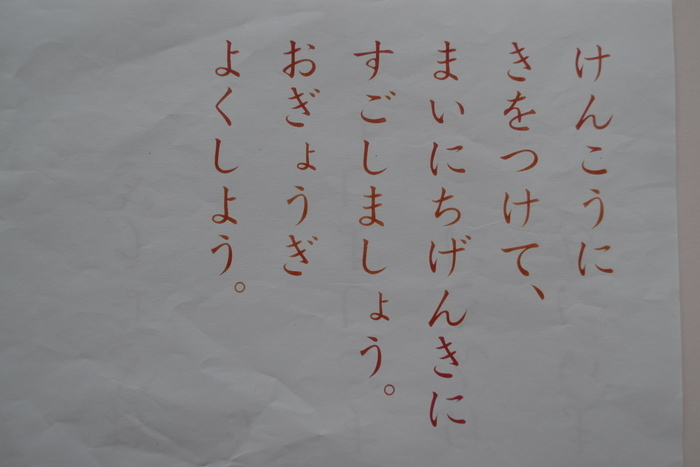 けんこうに
きをつけて、
まいにちげんきに
すごしましょう。
おぎょうぎ
よくしよう。